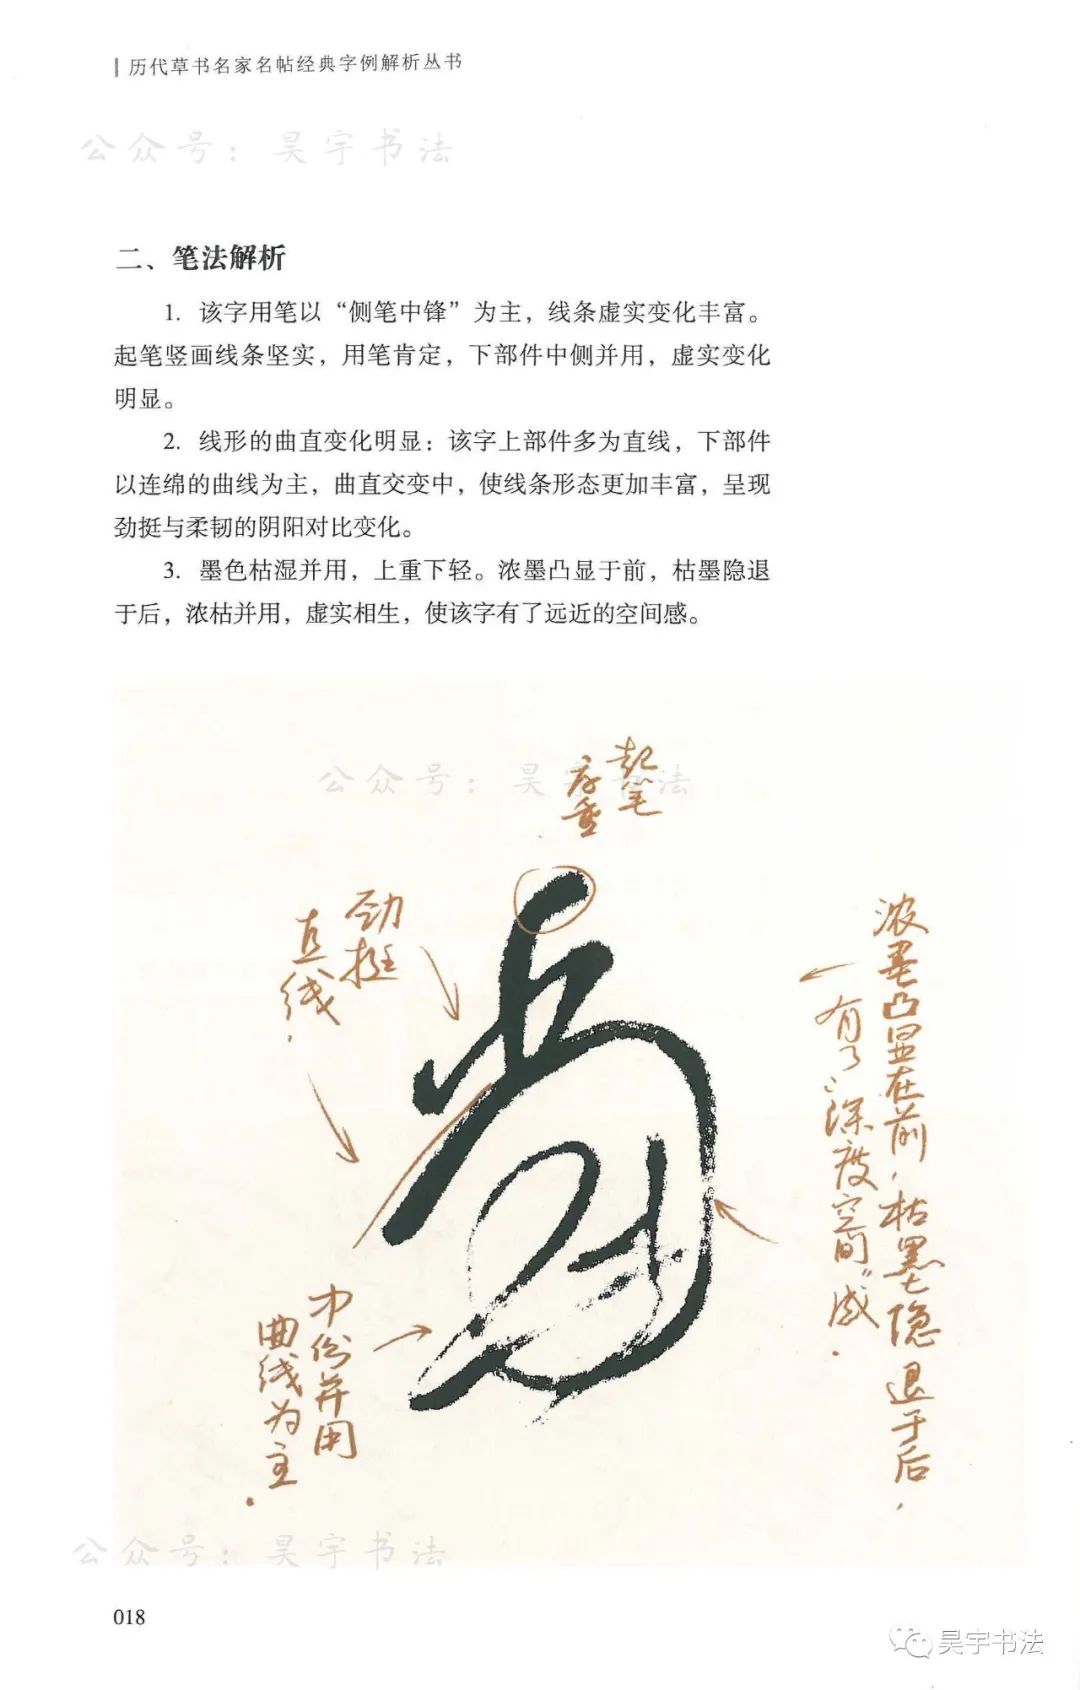 历代草书名家名帖经典字例解析丛书
公众号：昊宇书法
二、笔法解析
1. 该字用笔以“侧笔中锋”为主，线条虚实变化丰富。
起笔竖画线条坚实，用笔肯定，下部件中侧并用，虚实变化
明显。
2. 线形的曲直变化明显：该字上部件多为直线，下部件
以连绵的曲线为主，曲直交变中，使线条形态更加丰富，呈现
劲挺与柔韧的阴阳对比变化。
3. 墨色枯湿并用，上重下轻。浓墨凸显于前，枯墨隐退
于后，浓枯并用，虚实相生，使该字有了远近的空间感。
公众号：昊宇书法
起笔
厚重
劲挺
直线.
浓墨凸显在前，枯墨隐退于后，
有了“深度空间”感.
中侧并用
曲线为主.
公众号：昊宇书法
018
昊宇书法